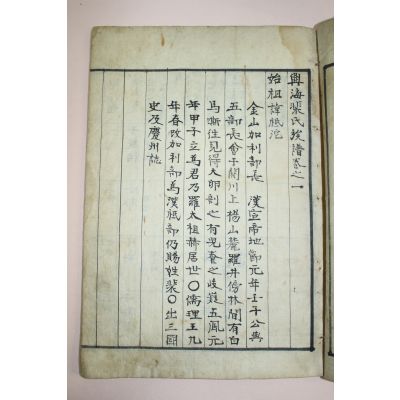 興海裴氏族譜卷之一
始祖諱祗沱
金山加利部長 漢宣帝地節元年壬子公與
五部長會于閼川上楊山麓羅井傍林間有白
馬嘶往見得大卵剖之有兒奇之歧嶷五鳳元
年甲子立為君乃羅太祖赫居世〇儒理王九
年春改加利部為漢祗部仍賜姓裴〇出三國
史及慶州誌